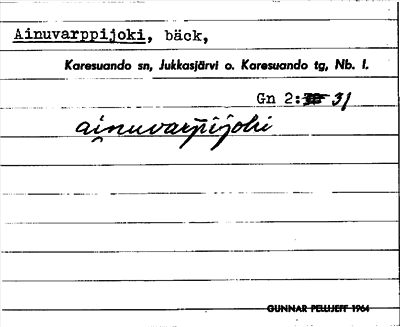 Ainuvarppijoki, bäck,
Karesuando sn, Jukkasjärvi o. Karesuando tg, Nb. l.
Gn 2: 31
ainuvarpijoki
GUNNAR PELLIJEFF 1964